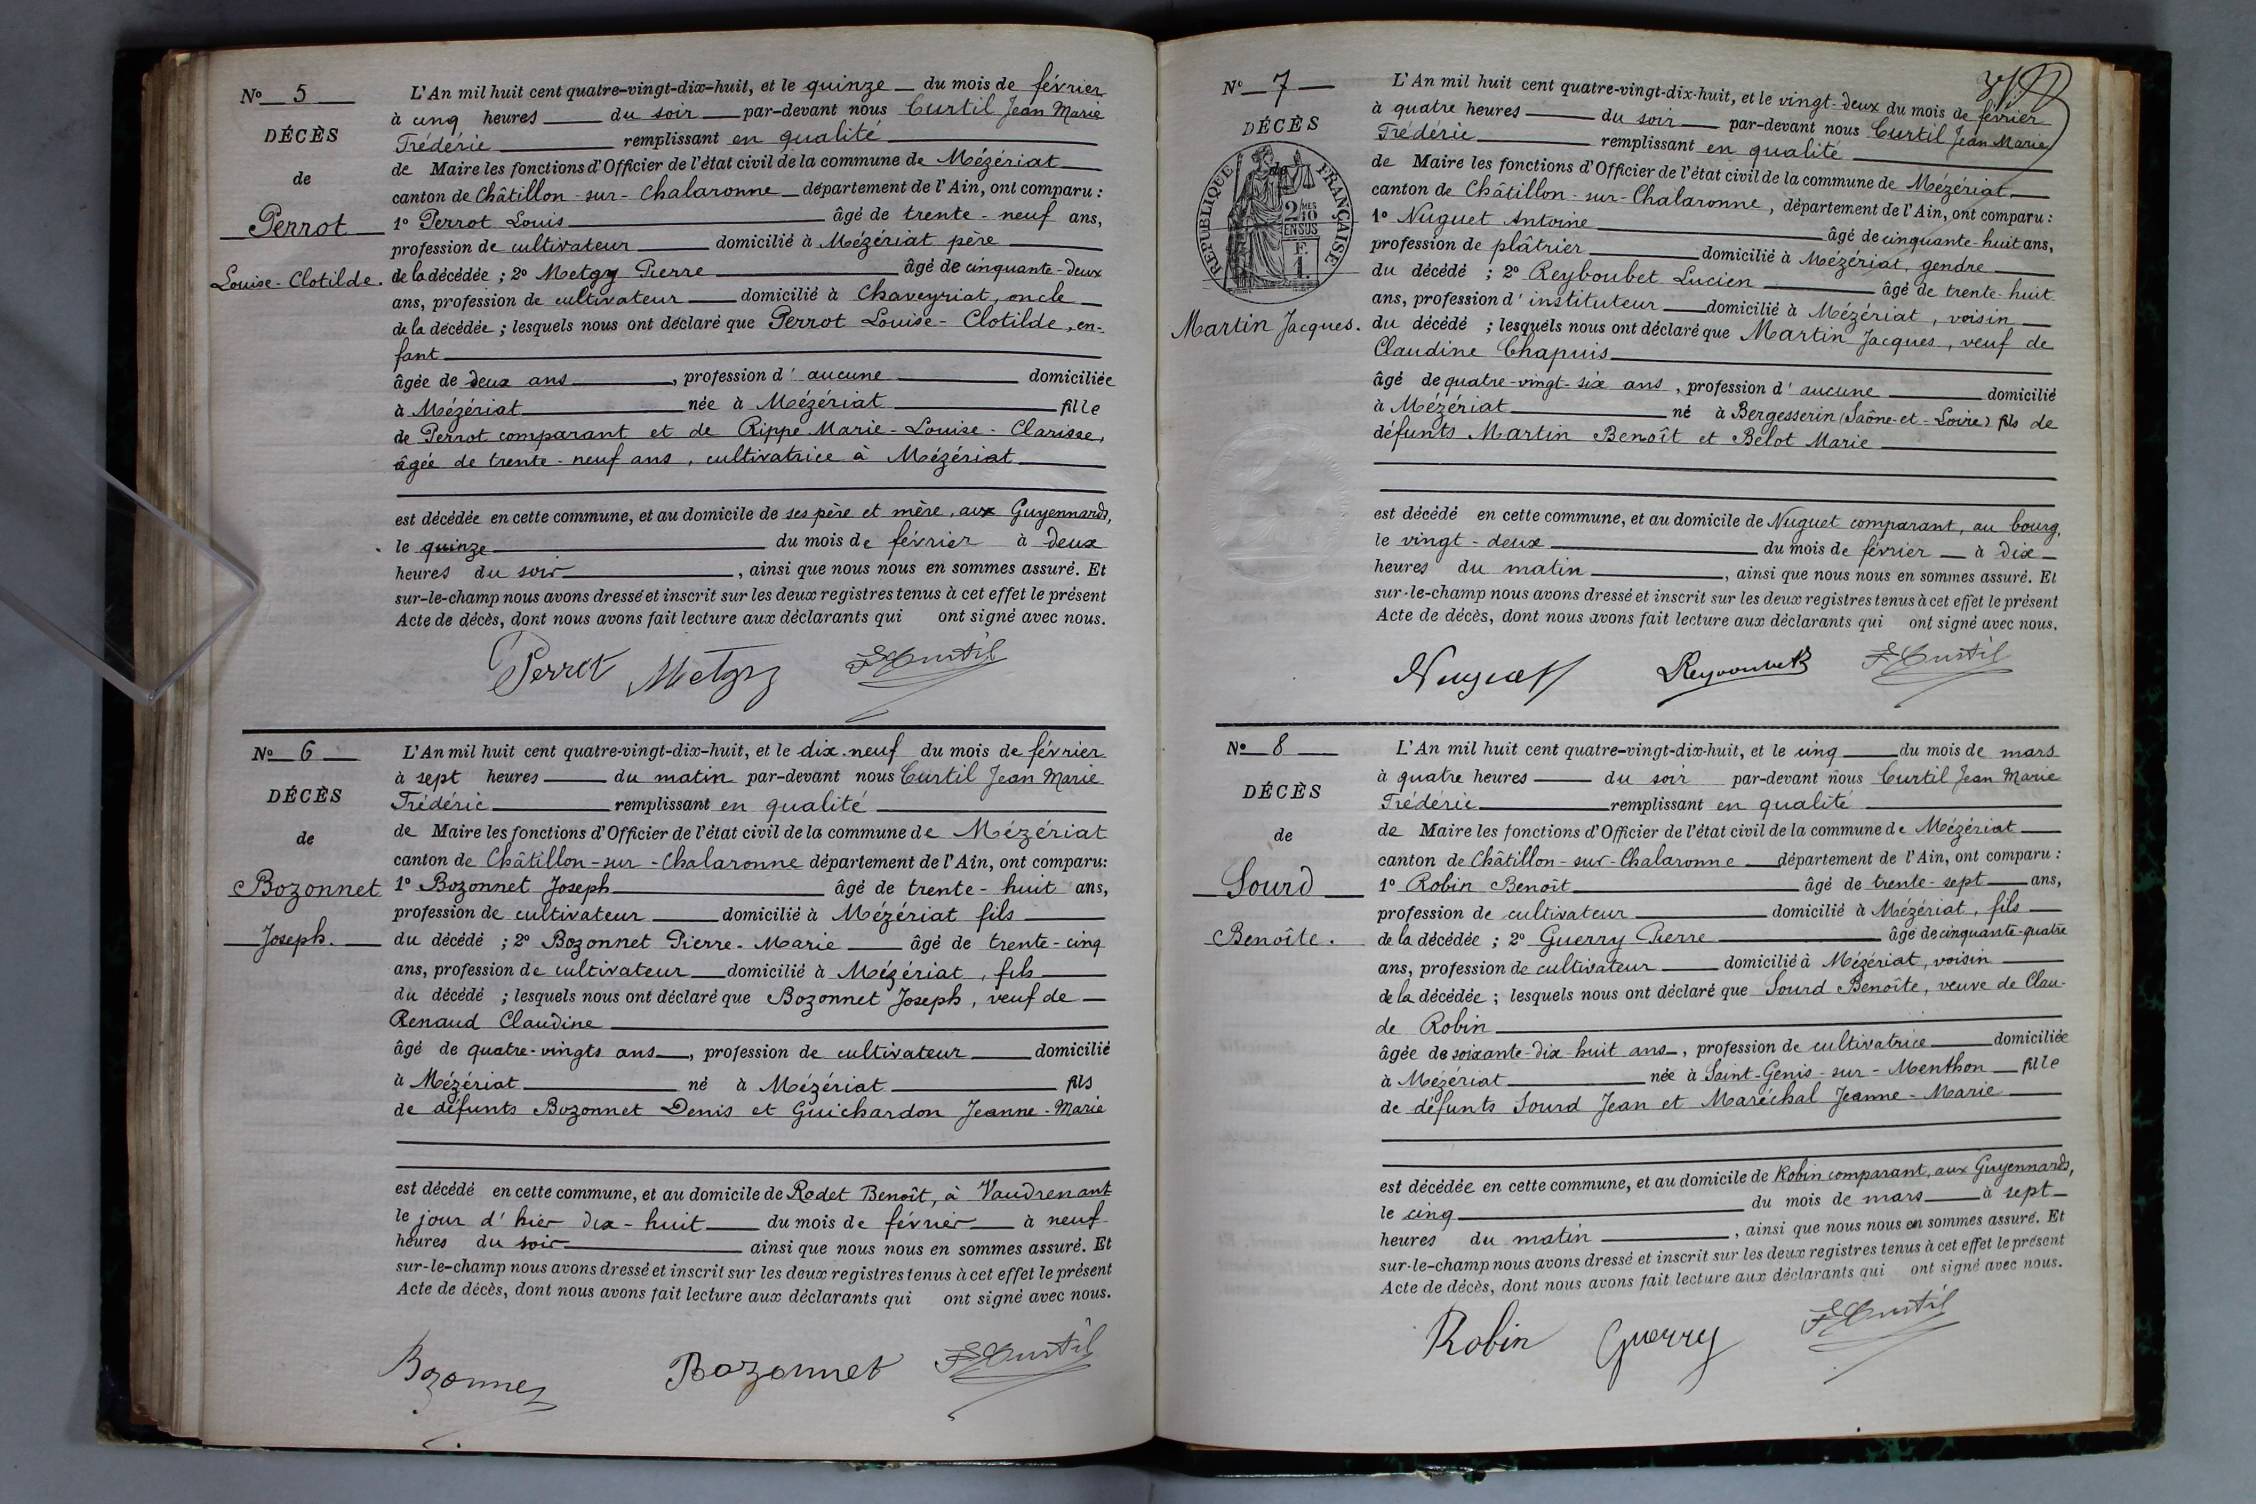 Nº 5
DÉCÈS
de
Perrot
Louise-Clotilde.
L'An mil huit cent quatre-vingt-dix-huit, et le quinze du mois de février
à cinq heures du soir par-devant nous Curtil Jean Marie
Frédéric remplissant en qualité
de Maire les fonctions d'Officier de l'état civil de la commune de Mézériat
canton de Châtillon-sur-Chalaronne département de l'Ain, ont comparu :
1º Perrot Louis âgé de trente-neuf ans,
profession de cultivateur domicilié à Mézériat père
de la décédée ; 2º Metgy Pierre âgé de cinquante-deux
ans, profession de cultivateur domicilié à Chaveyriat, oncle
de la décédée ; lesquels nous ont déclaré que Perrot Louise-Clotilde, en-
fant
âgée de deux ans, profession d'aucune domiciliée
à Mézériat née à Mézériat fille
de Perrot comparant et de Rippe Marie-Louise-Clarisse,
âgée de trente-neuf ans, cultivatrice à Mézériat
est décédée en cette commune, et au domicile de ses père et mère, aux Guyennards,
le quinze du mois de février à deux
heures du soir, ainsi que nous nous en sommes assuré. Et
sur-le-champ nous avons dressé et inscrit sur les deux registres tenus à cet effet le présent
Acte de décès, dont nous avons fait lecture aux déclarants qui ont signé avec nous.
Perrot Metgy F Curtil
Nº 6
DÉCÈS
de
Bozonnet
Joseph.
L'An mil huit cent quatre-vingt-dix-huit, et le dix-neuf du mois de février
à sept heures du matin par-devant nous Curtil Jean Marie
Frédéric remplissant en qualité
de Maire les fonctions d'Officier de l'état civil de la commune de Mézériat
canton de Châtillon-sur-Chalaronne département de l'Ain, ont comparu:
1º Bozonnet Joseph âgé de trente-huit ans,
profession de cultivateur domicilié à Mézériat fils
du décédé ; 2º Bozonnet Pierre-Marie âgé de trente-cinq
ans, profession de cultivateur domicilié à Mézériat, fils
du décédé ; lesquels nous ont déclaré que Bozonnet Joseph, veuf de
Renaud Claudine
âgé de quatre-vingts ans, profession de cultivateur domicilié
à Mézériat né à Mézériat fils
de défunts Bozonnet Denis et Guichardon Jeanne-Marie
est décédé en cette commune, et au domicile de Rodet Benoît, à Vaudrenant
le jour d'hier dix-huit du mois de février à neuf
heures du soir ainsi que nous nous en sommes assuré. Et
sur-le-champ nous avons dressé et inscrit sur les deux registres tenus à cet effet le présent
Acte de décès, dont nous avons fait lecture aux déclarants qui ont signé avec nous.
Bozonnet Bozonnet F Curtil
Nº 7
DÉCÈS
de
RÉPUBLIQUE FRANÇAISE
2/10 EN SUS
F. 1.
Martin Jacques.
L'An mil huit cent quatre-vingt-dix-huit, et le vingt-deux du mois de février
à quatre heures du soir par-devant nous Curtil Jean Marie
Frédéric remplissant en qualité
de Maire les fonctions d'Officier de l'état civil de la commune de Mézériat
canton de Châtillon-sur-Chalaronne, département de l'Ain, ont comparu :
1º Nuguet Antoine âgé de cinquante-huit ans,
profession de plâtrier domicilié à Mézériat, gendre
du décédé ; 2º Reyboubet Lucien âgé de trente-huit
ans, profession d'instituteur domicilié à Mézériat, voisin
du décédé ; lesquels nous ont déclaré que Martin Jacques, veuf de
Claudine Chapuis
âgé de quatre-vingt-six ans, profession d'aucune domicilié
à Mézériat né à Bergesserin (Saône-et-Loire) fils de
défunts Martin Benoît et Belot Marie
est décédé en cette commune, et au domicile de Nuguet comparant, au bourg,
le vingt-deux du mois de février à dix
heures du matin, ainsi que nous nous en sommes assuré. Et
sur-le-champ nous avons dressé et inscrit sur les deux registres tenus à cet effet le présent
Acte de décès, dont nous avons fait lecture aux déclarants qui ont signé avec nous.
Nuguet Reyboubet F Curtil
Nº 8
DÉCÈS
de
Sourd
Benoîte.
L'An mil huit cent quatre-vingt-dix-huit, et le cinq du mois de mars
à quatre heures du soir par-devant nous Curtil Jean Marie
Frédéric remplissant en qualité
de Maire les fonctions d'Officier de l'état civil de la commune de Mézériat
canton de Châtillon-sur-Chalaronne département de l'Ain, ont comparu :
1º Robin Benoît âgé de trente-sept ans,
profession de cultivateur domicilié à Mézériat, fils
de la décédée ; 2º Guerry Pierre âgé de cinquante-quatre
ans, profession de cultivateur domicilié à Mézériat, voisin
de la décédée ; lesquels nous ont déclaré que Sourd Benoîte, veuve de Clau-
de Robin
âgée de soixante-dix-huit ans, profession de cultivatrice domiciliée
à Mézériat née à Saint-Genis-sur-Menthon fille
de défunts Sourd Jean et Maréchal Jeanne-Marie
est décédée en cette commune, et au domicile de Robin comparant, aux Guyennards,
le cinq du mois de mars à sept
heures du matin, ainsi que nous nous en sommes assuré. Et
sur-le-champ nous avons dressé et inscrit sur les deux registres tenus à cet effet le présent
Acte de décès, dont nous avons fait lecture aux déclarants qui ont signé avec nous.
Robin Guerry F Curtil